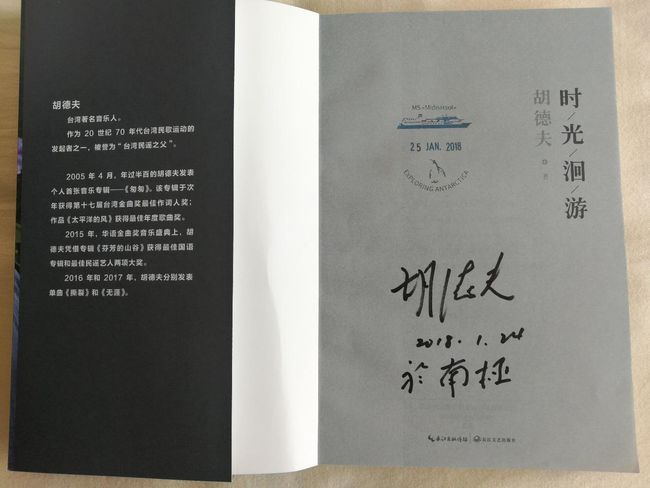 胡德夫
台湾著名音乐人。
作为 20 世纪 70 年代台湾民歌运动的
发起者之一，被誉为“台湾民谣之父”。
2005 年 4 月，年过半百的胡德夫发表
个人首张音乐专辑——《匆匆》。该专辑于次
年获得第十七届台湾金曲奖最佳作词人奖；
作品《太平洋的风》获得最佳年度歌曲奖。
2015 年，华语金曲奖音乐盛典上，胡
德夫凭借专辑《芬芳的山谷》获得最佳国语
专辑和最佳民谣艺人两项大奖。
2016 年和 2017 年，胡德夫分别发表
单曲《撕裂》和《无涯》。
时/光/洄/游
胡德夫 著
MS «Midnatsol»
25 JAN. 2018
EXPLORING ANTARCTICA
胡德夫
2018.1.24
於南极
长江出版传媒 长江文艺出版社